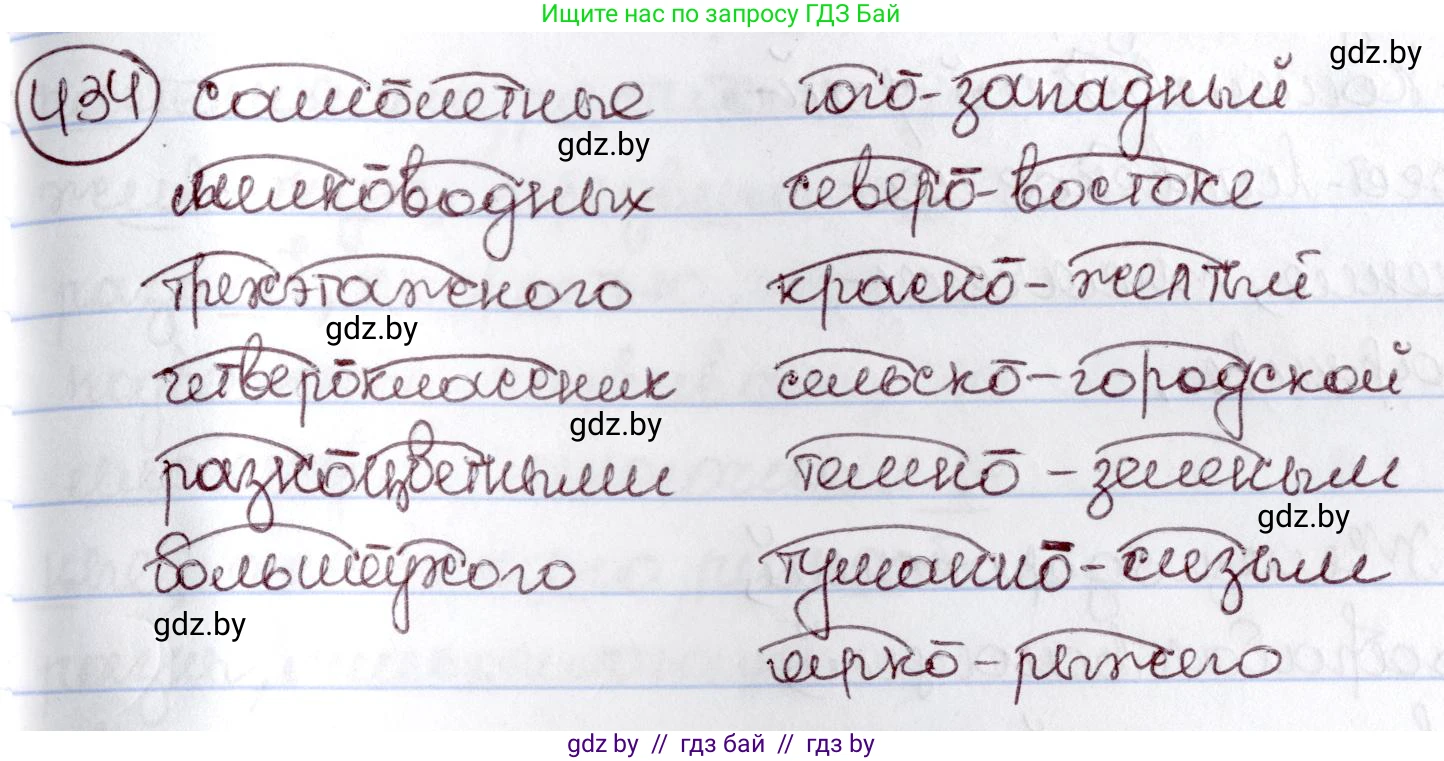 Ищите нас по запросу ГДЗ Бай
gdz.by
434 самолетные юго-западный
gdz.by
мелководных северо-востоке
трехэтажного красно-желтый
gdz.by
четвероклассник сельско-городской
gdz.by
разноцветными темно-зеленым
gdz.by
большеухого туманно-сизым
gdz.by
ярко-рыжего
gdz by // гдз бай // гдз by